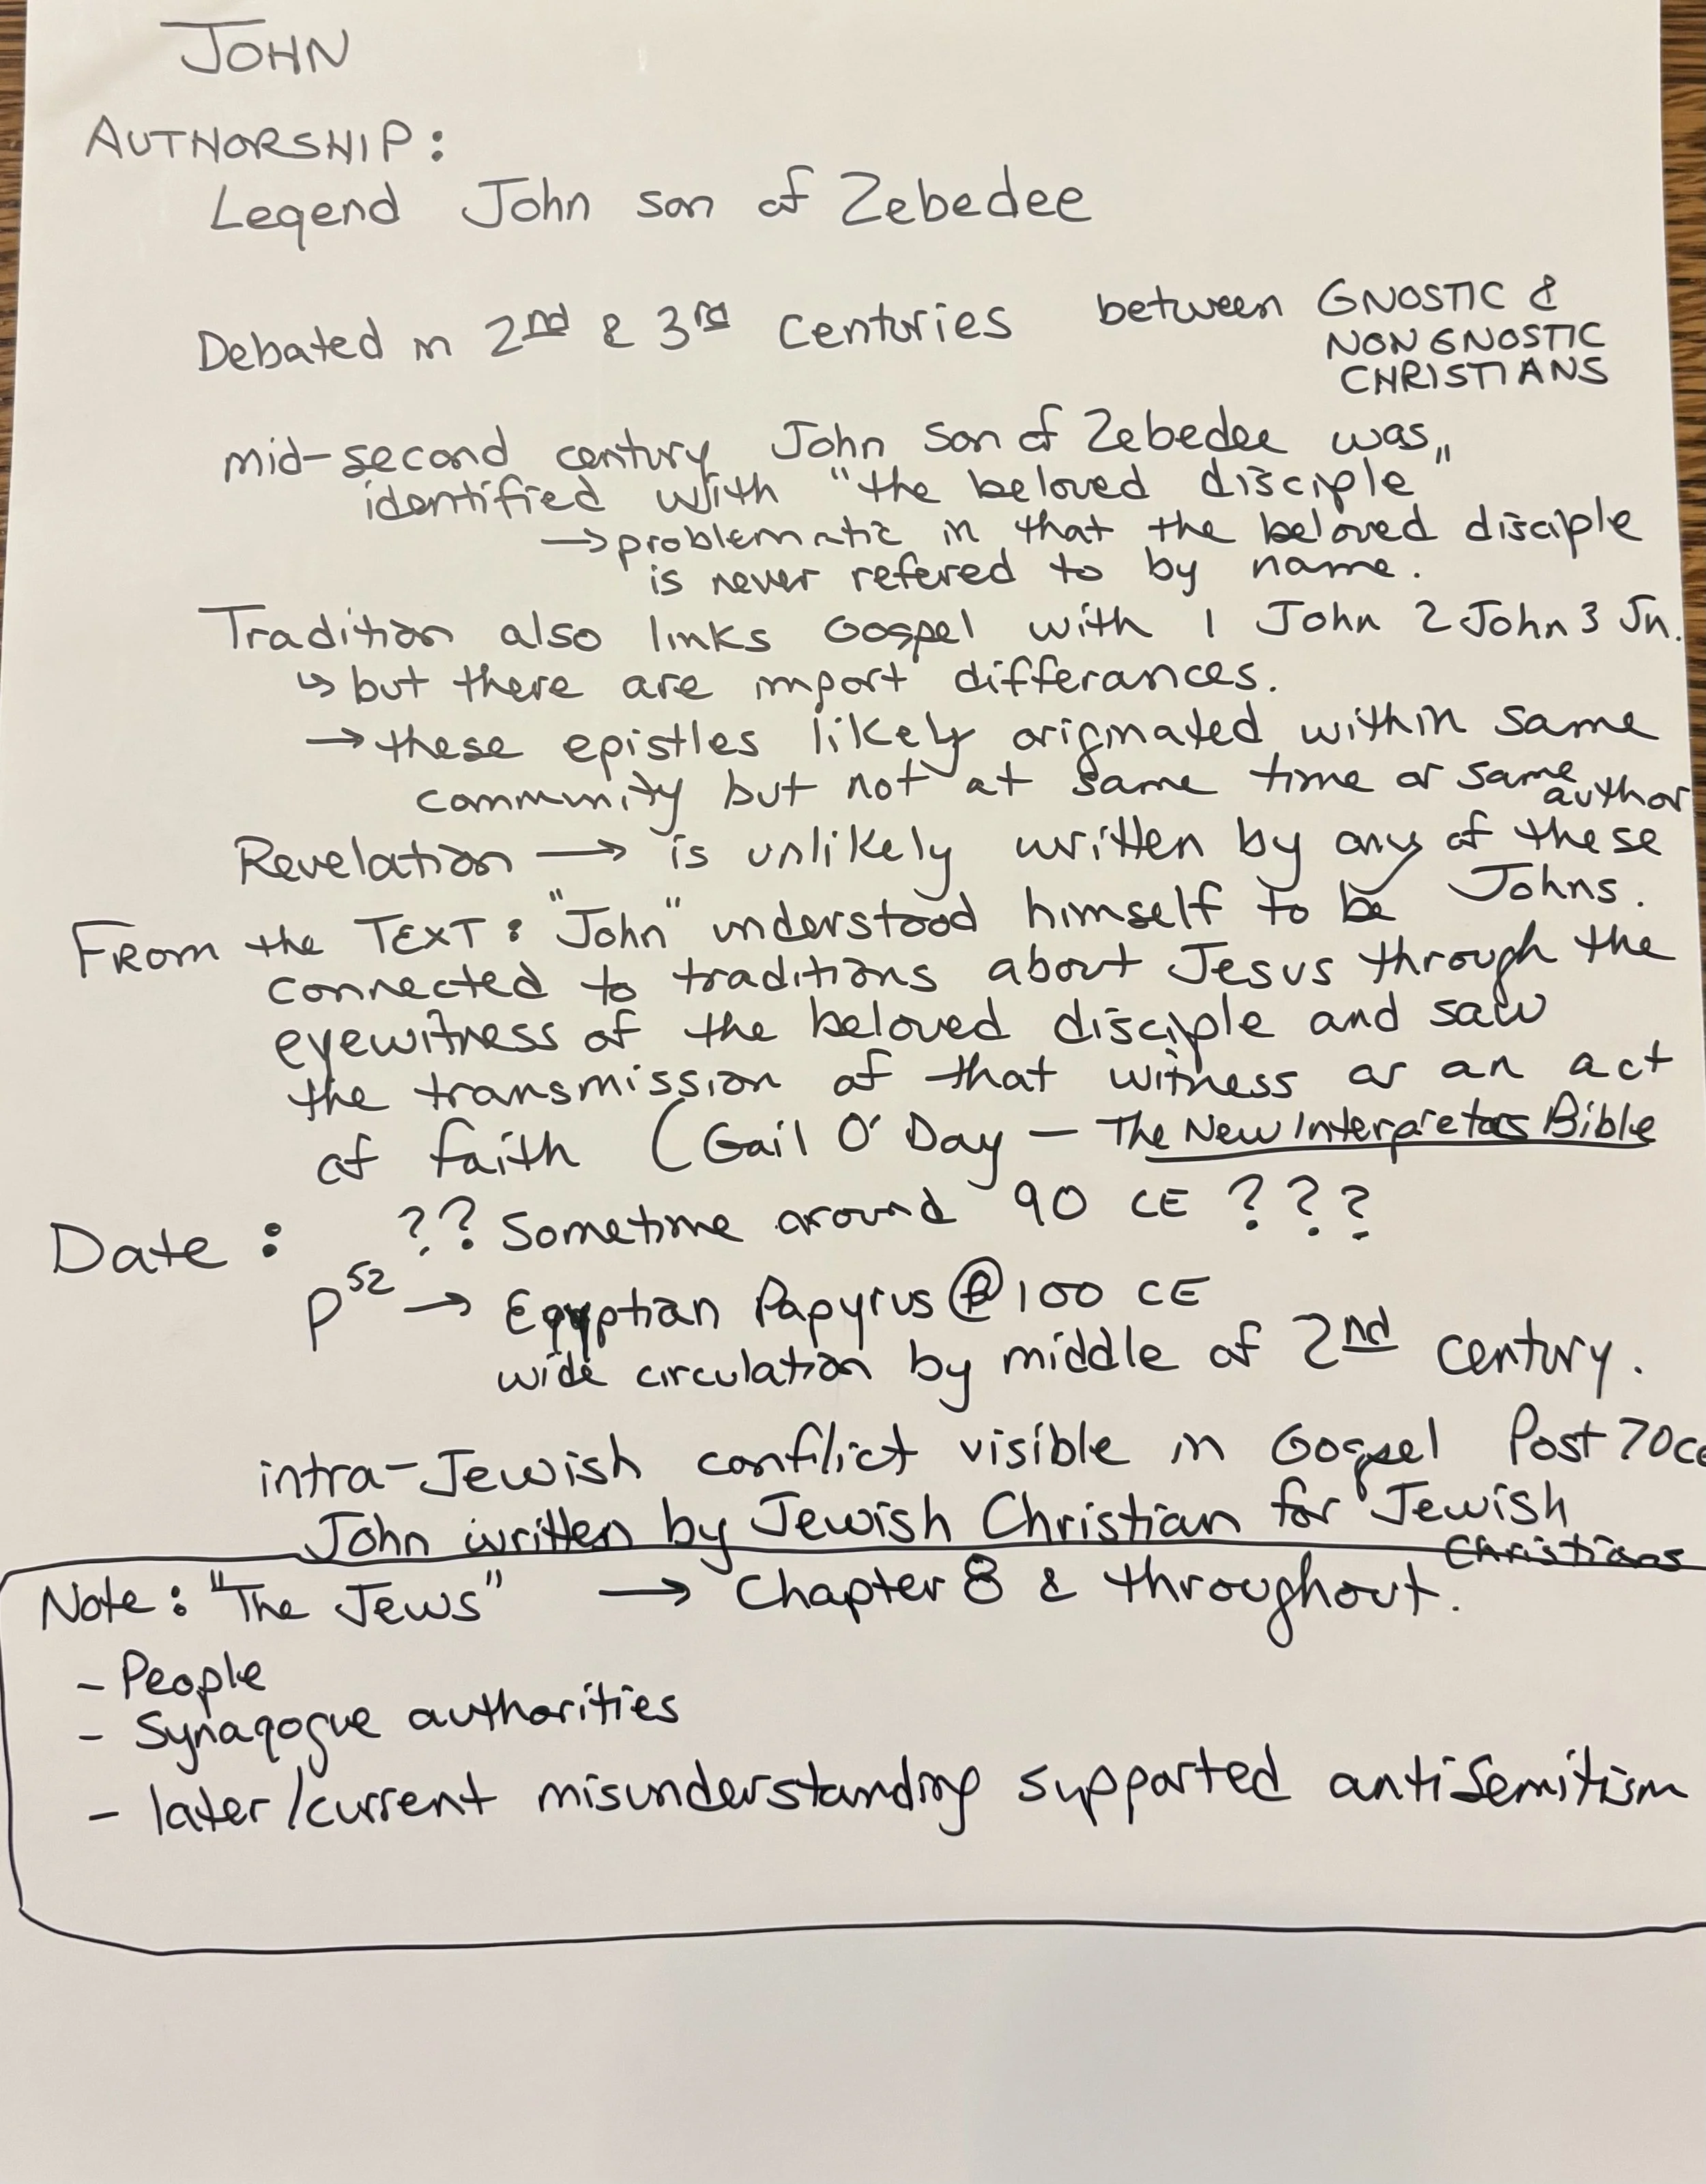 JOHN
AUTHORSHIP:
Legend John son of Zebedee
Debated in 2nd & 3rd Centuries between GNOSTIC &
NON GNOSTIC
CHRISTIANS
mid-second century John son of Zebedee was
identified with "the beloved disciple"
→ problematic in that the beloved disciple
is never refered to by name.
Tradition also links Gospel with 1 John 2 John 3 Jn.
↳ but there are import differances.
→ these epistles likely originated within same
community but not at same time or same author
Revelation → is unlikely written by any of these
Johns.
From the TEXT: "John" understood himself to be
connected to traditions about Jesus through the
eyewitness of the beloved disciple and saw
the transmission of that witness as an act
of faith (Gail O'Day - The New Interpretors Bible
Date: ?? Sometime around 90 CE ???
P52 → Egyptian Papyrus @ 100 CE
wide circulation by middle of 2nd century.
intra-Jewish conflict visible in Gospel Post 70ce
John written by Jewish Christian for Jewish
Christians
Note: "The Jews" → Chapter 8 & throughout.
- People
- Synagogue authorities
- later/current misunderstanding supported antiSemitism